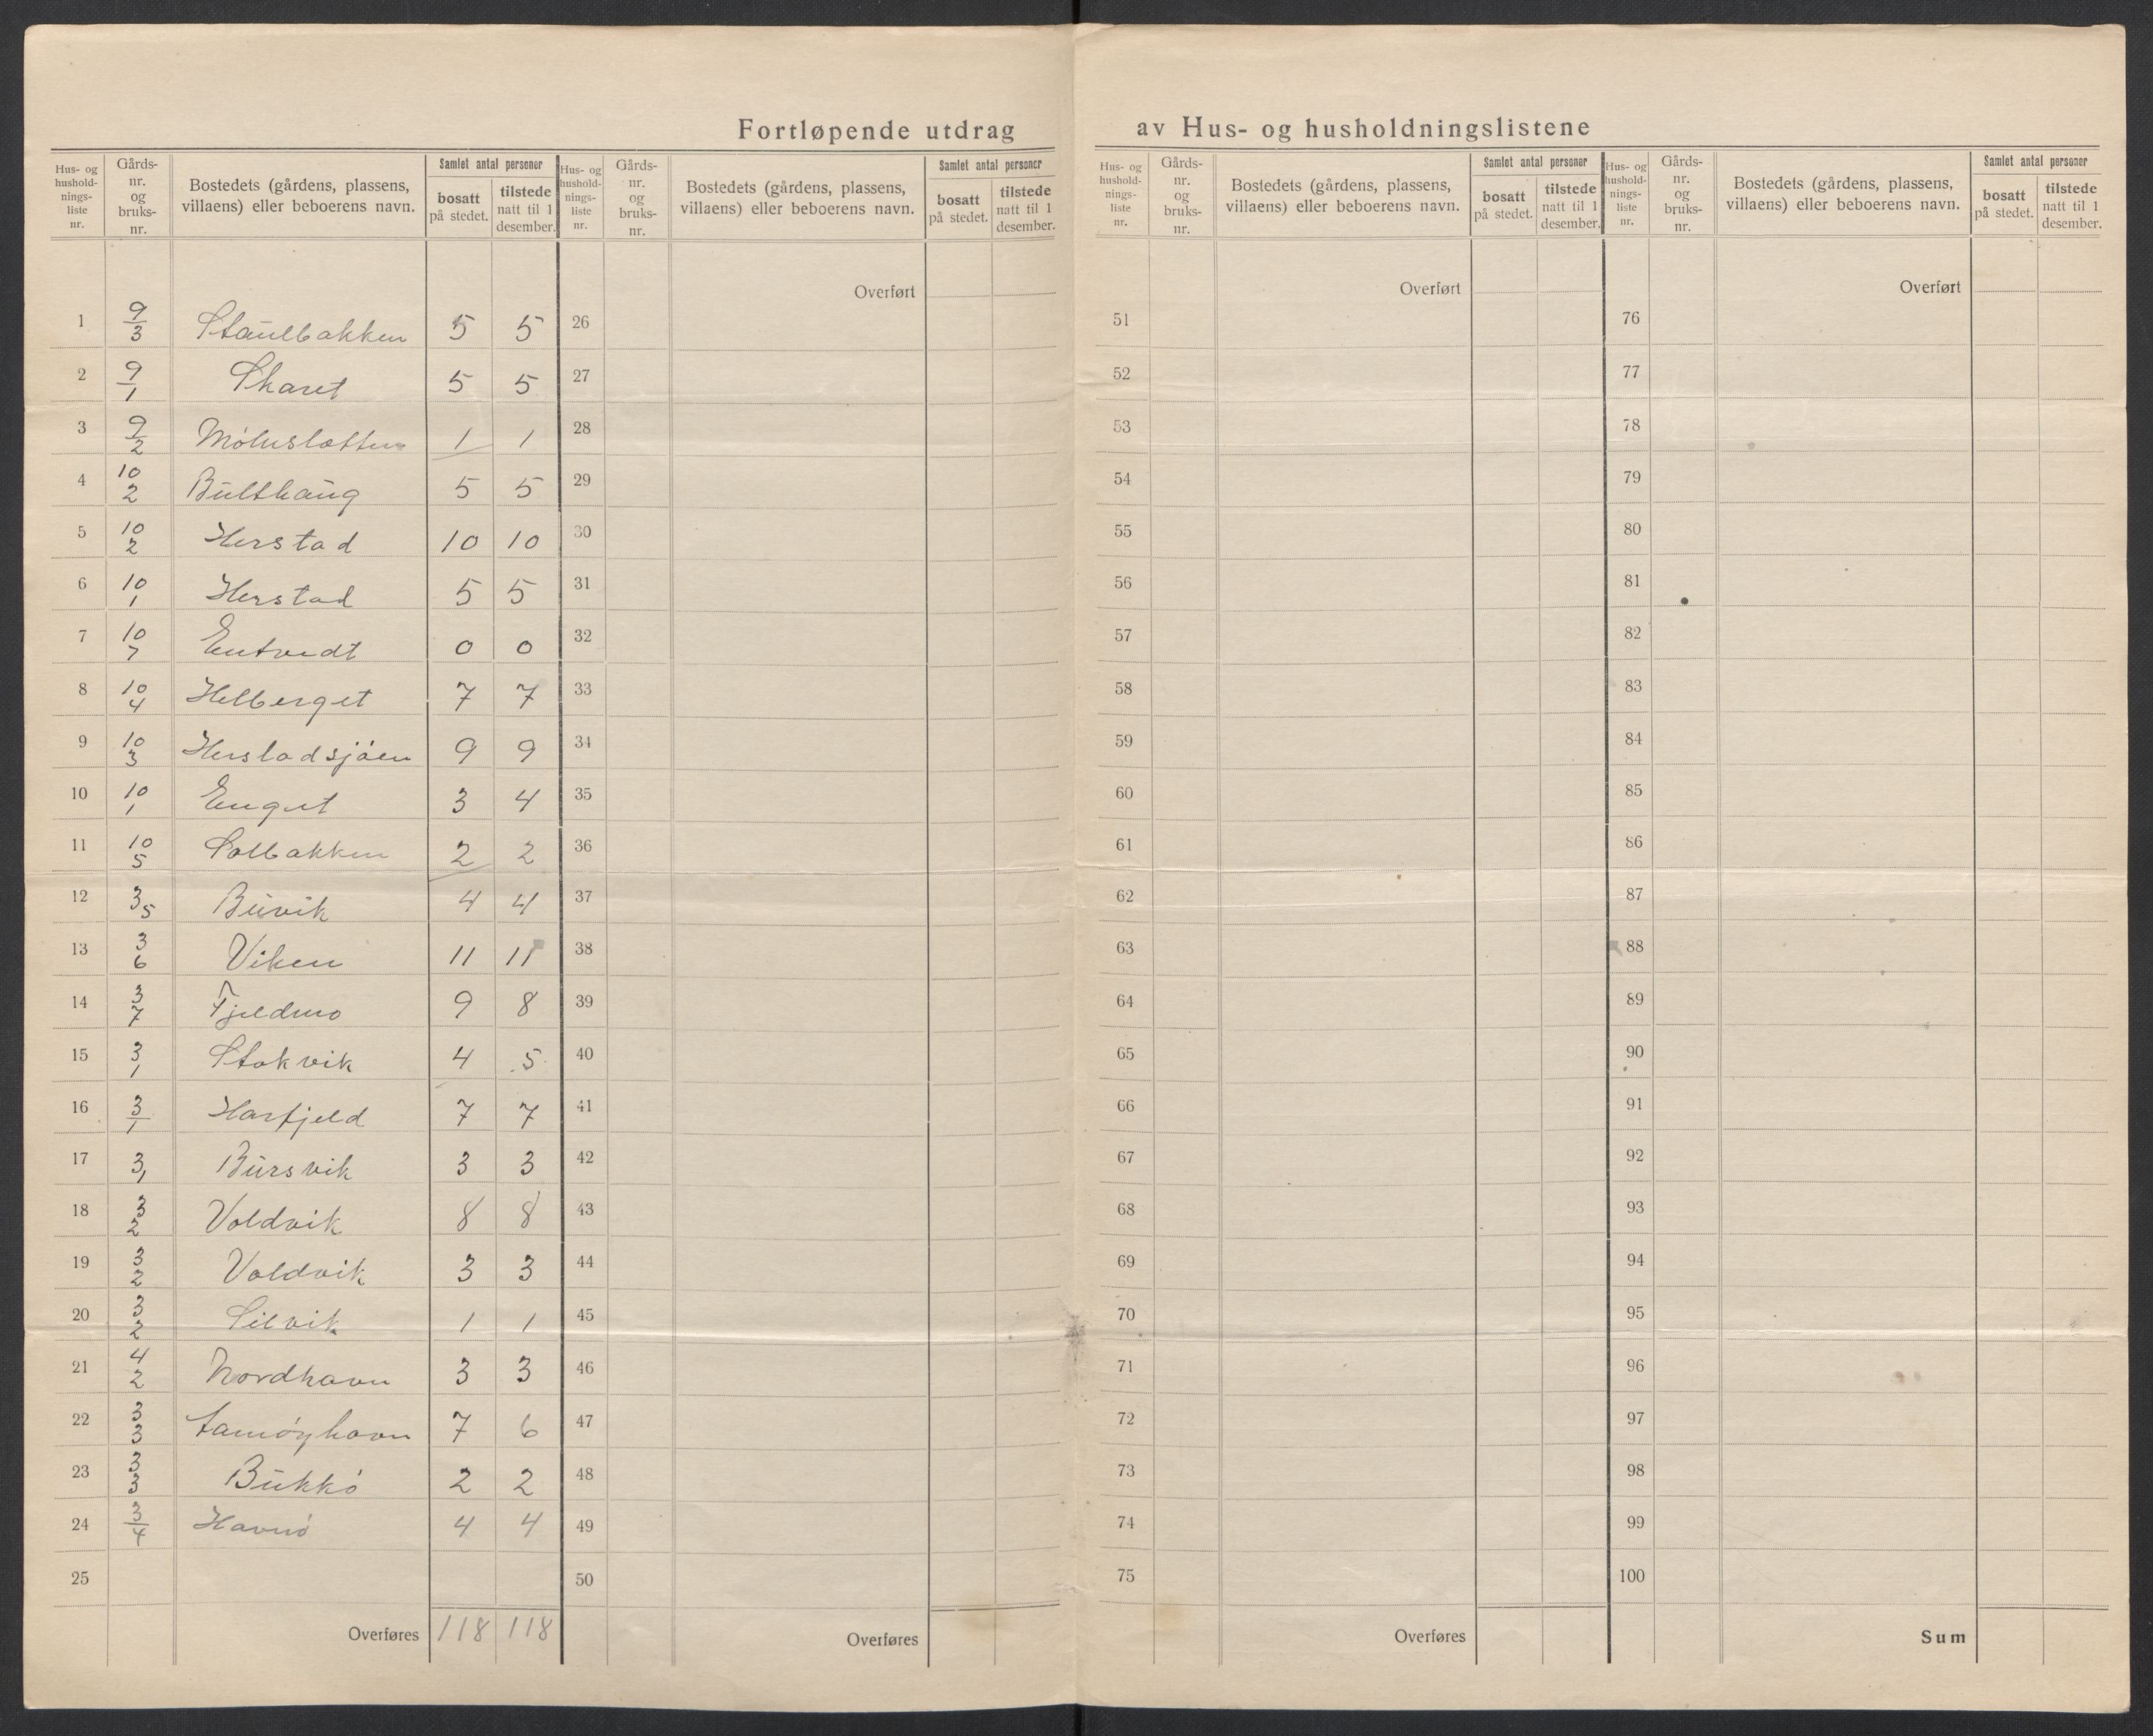 Fortløpende utdrag av Hus- og husholdningslistene
Hus- og hushold- nings- liste nr. | Gårds- nr. og bruks- nr. | Bostedets (gårdens, plassens, villaens) eller beboerens navn. | Samlet antal personer | bosatt på stedet. | tilstede natt til 1 desember.
1 9/3 Staulbakken 5 5
2 9/1 Skaret 5 5
3 9/2 1 1
4 10/2 Bulthaug 5 5
5 10/2 Herstad 10 10
6 10/1 Herstad 5 5
7 10/7 0 0
8 10/4 Helberget 7 7
9 10/3 Herstadsjøen 9 9
10 10/1 Enget 3 4
11 10/5 Solbakken 2 2
12 3/5 Buvik 4 4
13 3/6 Viken 11 11
14 3/7 Fjeldmo 9 8
15 3/1 Stokvik 4 5
16 3/1 Harfjeld 7 7
17 3/1 Bursvik 3 3
18 3/2 Voldvik 8 8
19 3/2 Voldvik 3 3
20 3/2 Silvik 1 1
21 4/2 Nordhavn 3 3
22 3/3 7 6
23 3/3 Bukkø 2 2
24 3/4 Havnø 4 4
25
Overføres 118 118
Hus- og hushold- nings- liste nr. | Gårds- nr. og bruks- nr. | Bostedets (gårdens, plassens, villaens) eller beboerens navn. | Samlet antal personer | bosatt på stedet. | tilstede natt til 1 desember.
Overført
26
27
28
29
30
31
32
33
34
35
36
37
38
39
40
41
42
43
44
45
46
47
48
49
50
Overføres
Hus- og hushold- nings- liste nr. | Gårds- nr. og bruks- nr. | Bostedets (gårdens, plassens, villaens) eller beboerens navn. | Samlet antal personer | bosatt på stedet. | tilstede natt til 1 desember.
Overført
51
52
53
54
55
56
57
58
59
60
61
62
63
64
65
66
67
68
69
70
71
72
73
74
75
Overføres
Hus- og hushold- nings- liste nr. | Gårds- nr. og bruks- nr. | Bostedets (gårdens, plassens, villaens) eller beboerens navn. | Samlet antal personer | bosatt på stedet. | tilstede natt til 1 desember.
Overført
76
77
78
79
80
81
82
83
84
85
86
87
88
89
90
91
92
93
94
95
96
97
98
99
100
Sum